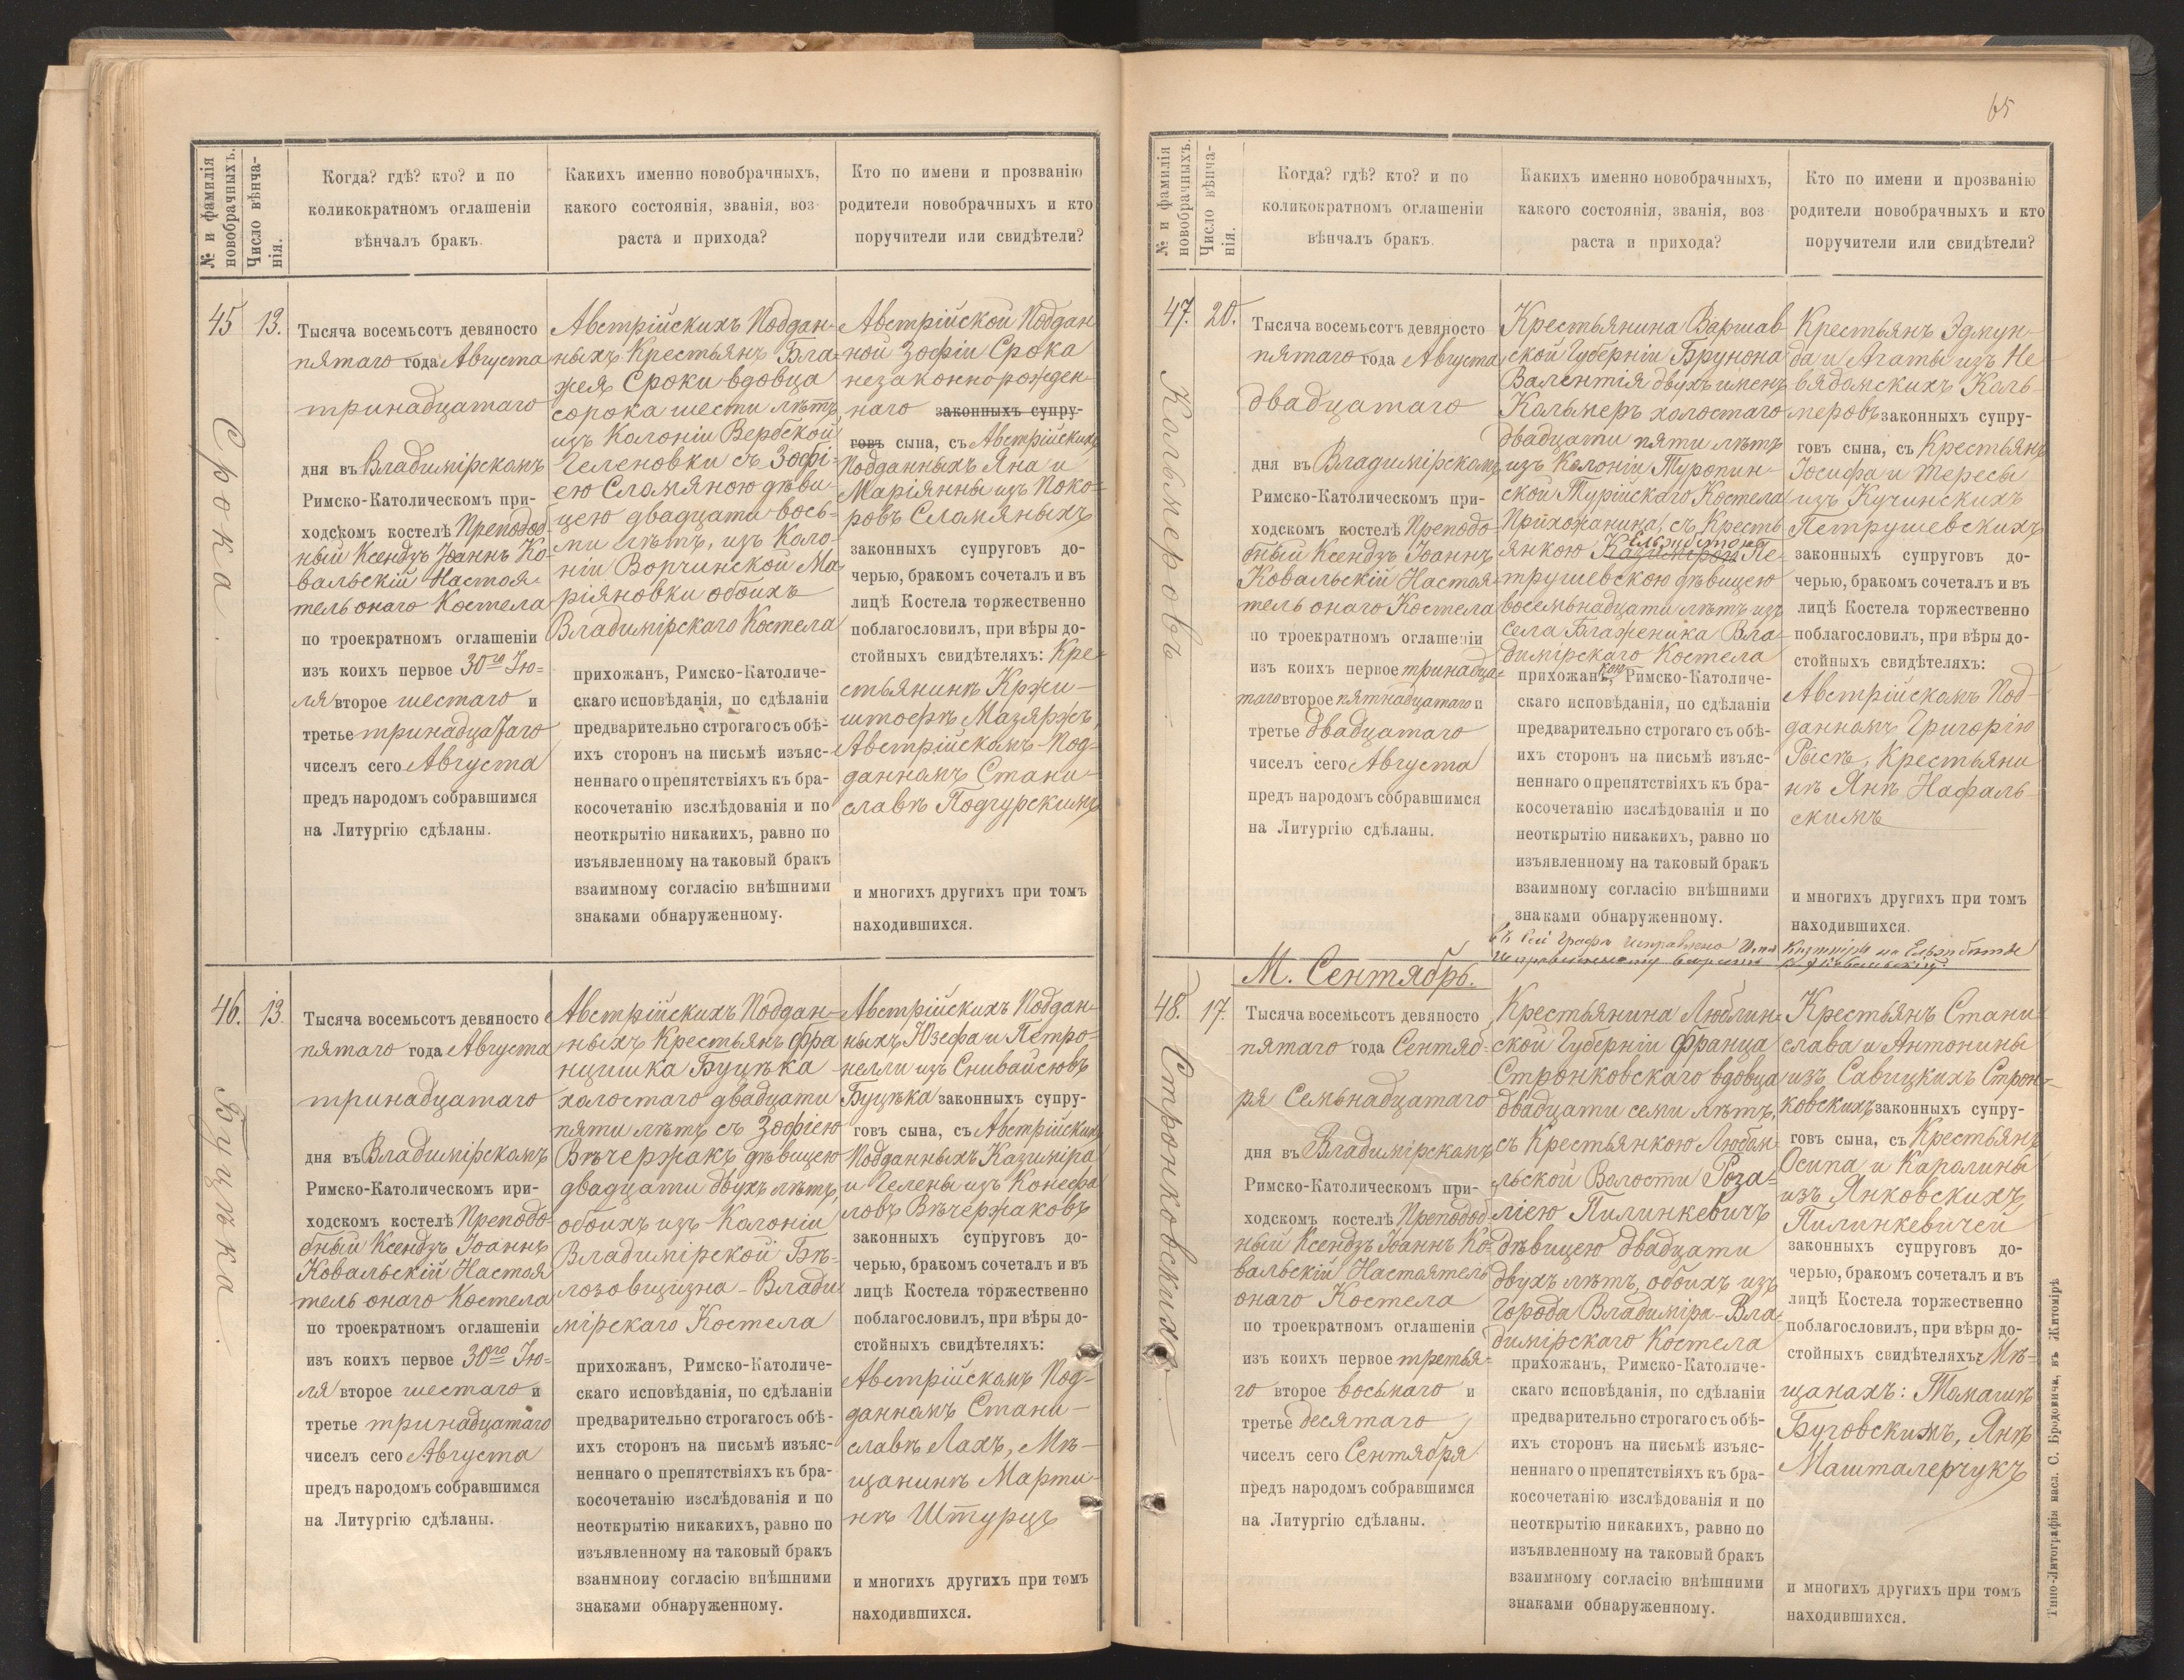 № и фамилія
новобрачныхъ.
Число вѣнча-
нія.
Когда? гдѣ? кто? и по
коликократномъ оглашеніи
вѣнчалъ бракъ.
Какихъ именно новобрачныхъ,
какого состоянія, званія, воз-
раста и прихода?
Кто по имени и прозванію
родители новобрачныхъ и кто
поручители или свидѣтели?
45
Срока.
13.
Тысяча восемьсотъ девяносто
пятаго года Августа
тринадцатаго
дня въ Владимірскомъ
Римско-Католическомъ при-
ходскомъ костелѣ Преподоб-
ный Ксендзъ Іоаннъ Ко-
вальскій Настоя-
тель онаго Костела
по троекратномъ оглашеніи
изъ коихъ первое 30го Ію=
ля второе шестаго и
третье тринадцатаго
чиселъ сего Августа
предъ народомъ собравшимся
на Литургію сдѣланы.
Австрійскихъ Поддан-
ныхъ Крестьянъ Бла-
жея Сроки вдовца
сорока шести лѣтъ
изъ Колоніи Вербской
Геленовки съ Зофі-
ею Сломяною дѣви-
цею двадцати вось-
ми лѣтъ, изъ Коло-
ніи Ворчинской Ма-
ріяновки обоихъ
Владимірскаго Костела
прихожанъ, Римско-Католиче-
скаго исповѣданія, по сдѣланіи
предварительно строгаго съ обѣ-
ихъ сторонъ на письмѣ изъяс-
неннаго о препятствіяхъ къ бра-
косочетанію изслѣдованія и по
неоткрытію никакихъ, равно по
изъявленному на таковый бракъ
взаимному согласію внѣшними
знаками обнаруженному.
Австрійской Поддан
ной Зофіи Срока
незаконнорожден-
наго законныхъ супру-
говъ сына, съ Австрійскихъ
Подданныхъ Яна и
Маріянны изъ Поко-
ровъ Сломяныхъ
законныхъ супруговъ до-
черью, бракомъ сочеталъ и въ
лицѣ Костела торжественно
поблагословилъ, при вѣры до-
стойныхъ свидѣтеляхъ: Кре-
стьянинѣ Кржи-
штофѣ Мазяржъ,
Австрійскомъ Под-
данномъ Стани-
славѣ Подгурскимъ
и многихъ другихъ при томъ
находившихся.
46.
Буцѣка.
13.
Тысяча восемьсотъ девяносто
пятаго года Августа
тринадцатаго
дня въ Владимірскомъ
Римско-Католическомъ при-
ходскомъ костелѣ Преподо-
бный Ксендзъ Іоаннъ
Ковальскій Настоя
тель онаго Костела
по троекратномъ оглашеніи
изъ коихъ первое 30го Ію=
ля второе шестаго и
третье тринадцатаго
чиселъ сего Августа
предъ народомъ собравшимся
на Литургію сдѣланы.
Австрійскихъ Поддан-
ныхъ Крестьянъ Фра
нцишка Буцѣка
холостаго двадцати
пяти лѣтъ съ Зофіею
Вѣчержакъ дѣвицею
двадцати двухъ лѣтъ,
обоихъ изъ Колоніи
Владимірской Бѣ-
лозовщизна - Влади
мірскаго Костела
прихожанъ, Римско-Католиче-
скаго исповѣданія, по сдѣланіи
предварительно строгаго съ обѣ-
ихъ сторонъ на письмѣ изъяс-
неннаго о препятствіяхъ къ бра-
косочетанію изслѣдованія и по
неоткрытію никакихъ, равно по
изъявленному на таковый бракъ
взанмноиу согласію внѣшними
знаками обнаруженному.
Австрійскихъ Поддан-
ныхъ Юзефа и Петро-
нелли изъ
Буцѣка законныхъ супру-
говъ сына, съ Австрійскихъ
Подданныхъ Казиміра
и Гелены изъ Конефа
ловъ Вѣчержаковъ
законныхъ супруговъ до-
черью, бракомъ сочеталъ и въ
лицѣ Костела торжественно
поблагословилъ, при вѣры до-
стойныхъ свидѣтеляхъ:
Австрійскомъ Под-
данномъ Стани-
славѣ Лахъ, Мѣ-
щанинѣ Марти-
нѣ Штурцъ
и многихъ другихъ при томъ
находившихся.
65
№ и фамилія
новобрачныхъ.
Число вѣнча-
нія.
Когда? гдѣ? кто? и по
коликократномъ оглашеніи
вѣнчалъ бракъ.
Какихъ именно новобрачныхъ,
какого состоянія, званія, воз
раста и прихода?
Кто по имени и прозванію
родители новобрачныхъ и кто
поручители или свидѣтели?
47.
Кольмеровъ
20.
Тысяча восемьсотъ девяносто
пятаго года Августа
двадцатаго
дня въ Владимірскомъ
Римско-Католическомъ при-
ходскомъ костелѣ Преподо-
бный Ксендзъ Іоаннъ
Ковальскій Настоя-
тель онаго Костела
по троекратномъ оглашеніи
изъ коихъ первое тринадца-
таго второе пятнадцатаго и
третье двадцатаго
чиселъ сего Августа
предъ народомъ собравшимся
на Литургію сдѣланы.
Крестьянина Варшав
ской Губерніи Брунона
Валентія двухъ именъ
Кольмеръ холостаго
двадцати пяти лѣтъ
изъ Колоніи Туропин-
ской Турійскаго Костела
Прихожанина, съ Кресть
Ельзбетою
янкою Казимірою Пе-
трушевскою дѣвицею
восемьнадцати лѣтъ изъ
села Блаженика Вла-
димірскаго Костела
прихожанъ, Римско-Католиче-
скаго исповѣданія, по сдѣланіи
предварительно строгаго съ обѣ-
ихъ сторонъ на письмѣ изъяс-
неннаго о препятствіяхъ къ бра-
косочетанію изслѣдованія и по
неоткрытію никакихъ, равно по
изъявленному на таковый бракъ
взаимному согласію внѣшними
знаками обнаруженному.
Крестьянъ Эдмун-
да и Агаты изъ Не
вядомскихъ Коль-
меровъ законныхъ супру-
говъ сына, съ Крестьянъ
Іосифа и Тересы
изъ Кучинскихъ
Петрушевскихъ
законныхъ супруговъ до-
черью, бракомъ сочеталъ и въ
лицѣ Костела торжественно
поблагословилъ, при вѣры до-
стойныхъ свидѣтеляхъ:
Австрійскомъ Под-
данномъ Григорію
Рысѣ, Крестьяни
нѣ Янѣ Нафаль-
скимъ
и многихъ другихъ при томъ
находившихся.
Въ сей графѣ исправлено
М. Сентябрь.
48.
Стронковскихъ
17.
Тысяча восемьсотъ девяносто
пятаго года Сентяб-
ря Семьнадцатаго
дня въ Владимірскомъ
Римско-Католическомъ при-
ходскомъ костелѣ Преподоб-
ный Ксендзъ Іоаннъ Ко-
вальскій Настоятель
онаго Костела
по троекратномъ оглашеніи
изъ коихъ первое третья-
го второе восьмаго и
третье десятаго
чиселъ сего Сентября
предъ народомъ собравшимся
на Литургію сдѣланы.
Крестьянина Люблин-
ской Губерніи Франца
Стронковскаго вдовца
двадцати семи лѣтъ,
съ Крестьянкою Любом-
льской Волости Роза-
ліею Пилинкевичъ
дѣвицею двадцати
двухъ лѣтъ, обоихъ изъ
города Владиміра - Вла-
димірскаго Костела
прихожанъ, Римско-Католиче-
скаго исповѣданія, по сдѣланіи
предварительно строгаго съ обѣ-
ихъ сторонъ на письмѣ изъяс-
неннаго о препятствіяхъ къ бра-
косочетанію изслѣдованія и по
неоткрытію никакихъ, равно по
изъявленному на таковый бракъ
взаимному согласію внѣшними
знаками обнаруженному.
Крестьянъ Стани
слава и Антонины
изъ Савицкихъ Строн-
ковскихъ законныхъ супру-
говъ сына, съ Крестьянъ
Осипа и Каролины
изъ Янковскихъ
Пилинкевичей
законныхъ супруговъ до-
черью, бракомъ сочеталъ и въ
лицѣ Костела торжественно
поблагословилъ, при вѣры до-
стойныхъ свидѣтеляхъ: Мѣ-
щанахъ: Томашѣ
Буговскимъ, Янѣ
Машталерчукъ
и многихъ другихъ при томъ
находившихся.
Типо-Литографія насл. С. Бродовича, въ Житомірѣ